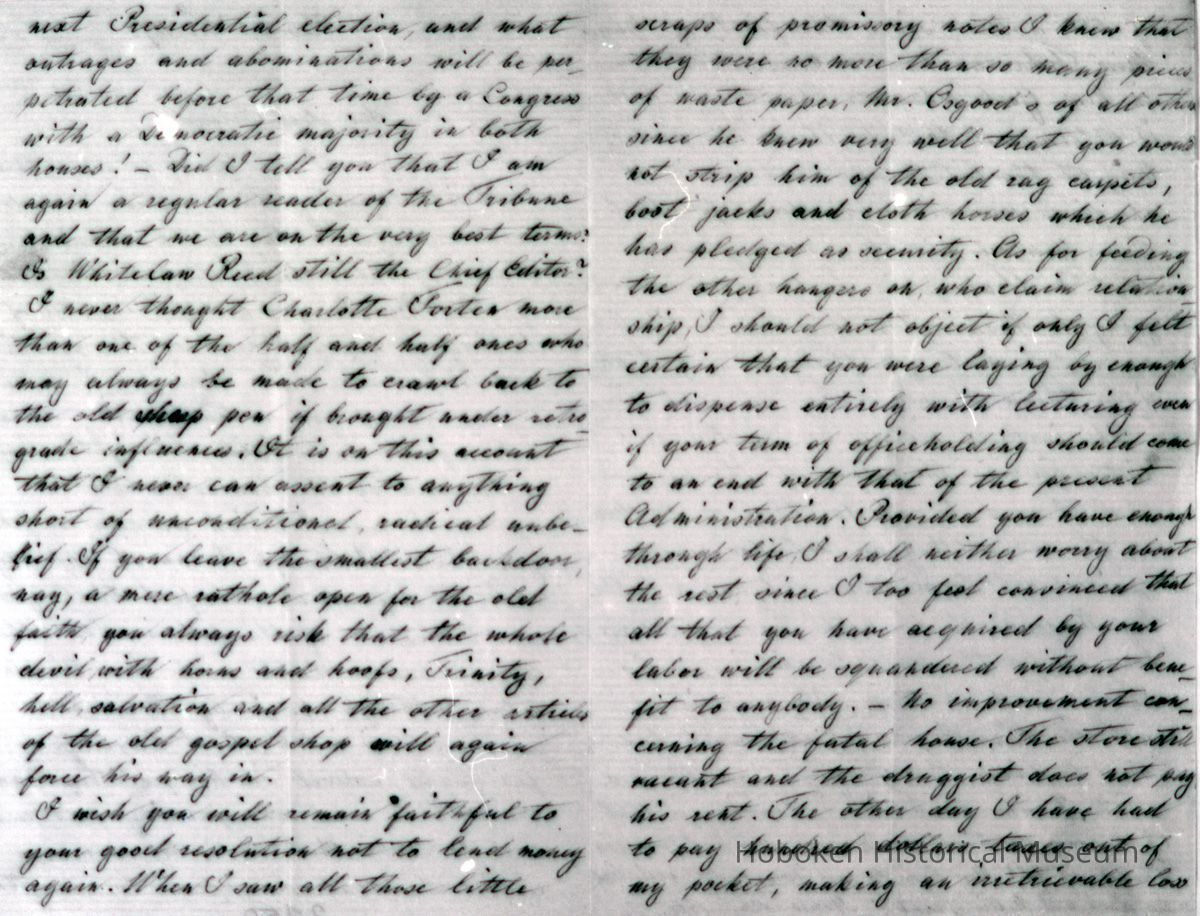 next Presidential election, and what
outrages and abominations will be per-
petrated before that time by a Congress
with a Democratic majority in both
houses! – Did I tell you that I am
again a regular reader of the Tribune
and that we are on the very best terms?
Is Whitelaw Reed still the Chief Editor?
I never thought Charlotte Forten more
than one of the half and half ones who
may always be made to crawl back to
the old sheep pen if brought under retro-
grade influences. It is on this account
that I never can assent to anything
short of unconditional, radical unbe-
lief. If you leave the smallest backdoor,
nay, a mere rathole open for the old
faith, you always risk that the whole
devil, with horns and hoofs, Trinity,
hell, salvation and all the other articles
of the old gospel shop will again
force his way in.
I wish you will remain faithful to
your good resolution not to lend money
again. When I saw all those little
scraps of promissory notes I knew that
they were no more than so many pieces
of waste paper, Mr. Osgood's of all others
since he knew very well that you would
not strip him of the old rag carpets,
boot jacks and cloth horses which he
has pledged as security. As for feeding
the other hangers on, who claim relation-
ship, I should not object if only I felt
certain that you were laying by enough
to dispense entirely with lecturing even
if your term of officeholding should come
to an end with that of the present
Administration. Provided you have enough
through life, I shall neither worry about
the rest since I too feel convinced that
all that you have acquired by your
labor will be squandered without bene-
fit to anybody. – No improvement con-
cerning the fatal house. The store still
vacant and the druggist does not pay
his rent. The other day I have had
to pay hundred dollars taxes out of
my pocket, making an irretrievable loss
Hoboken Historical Museum